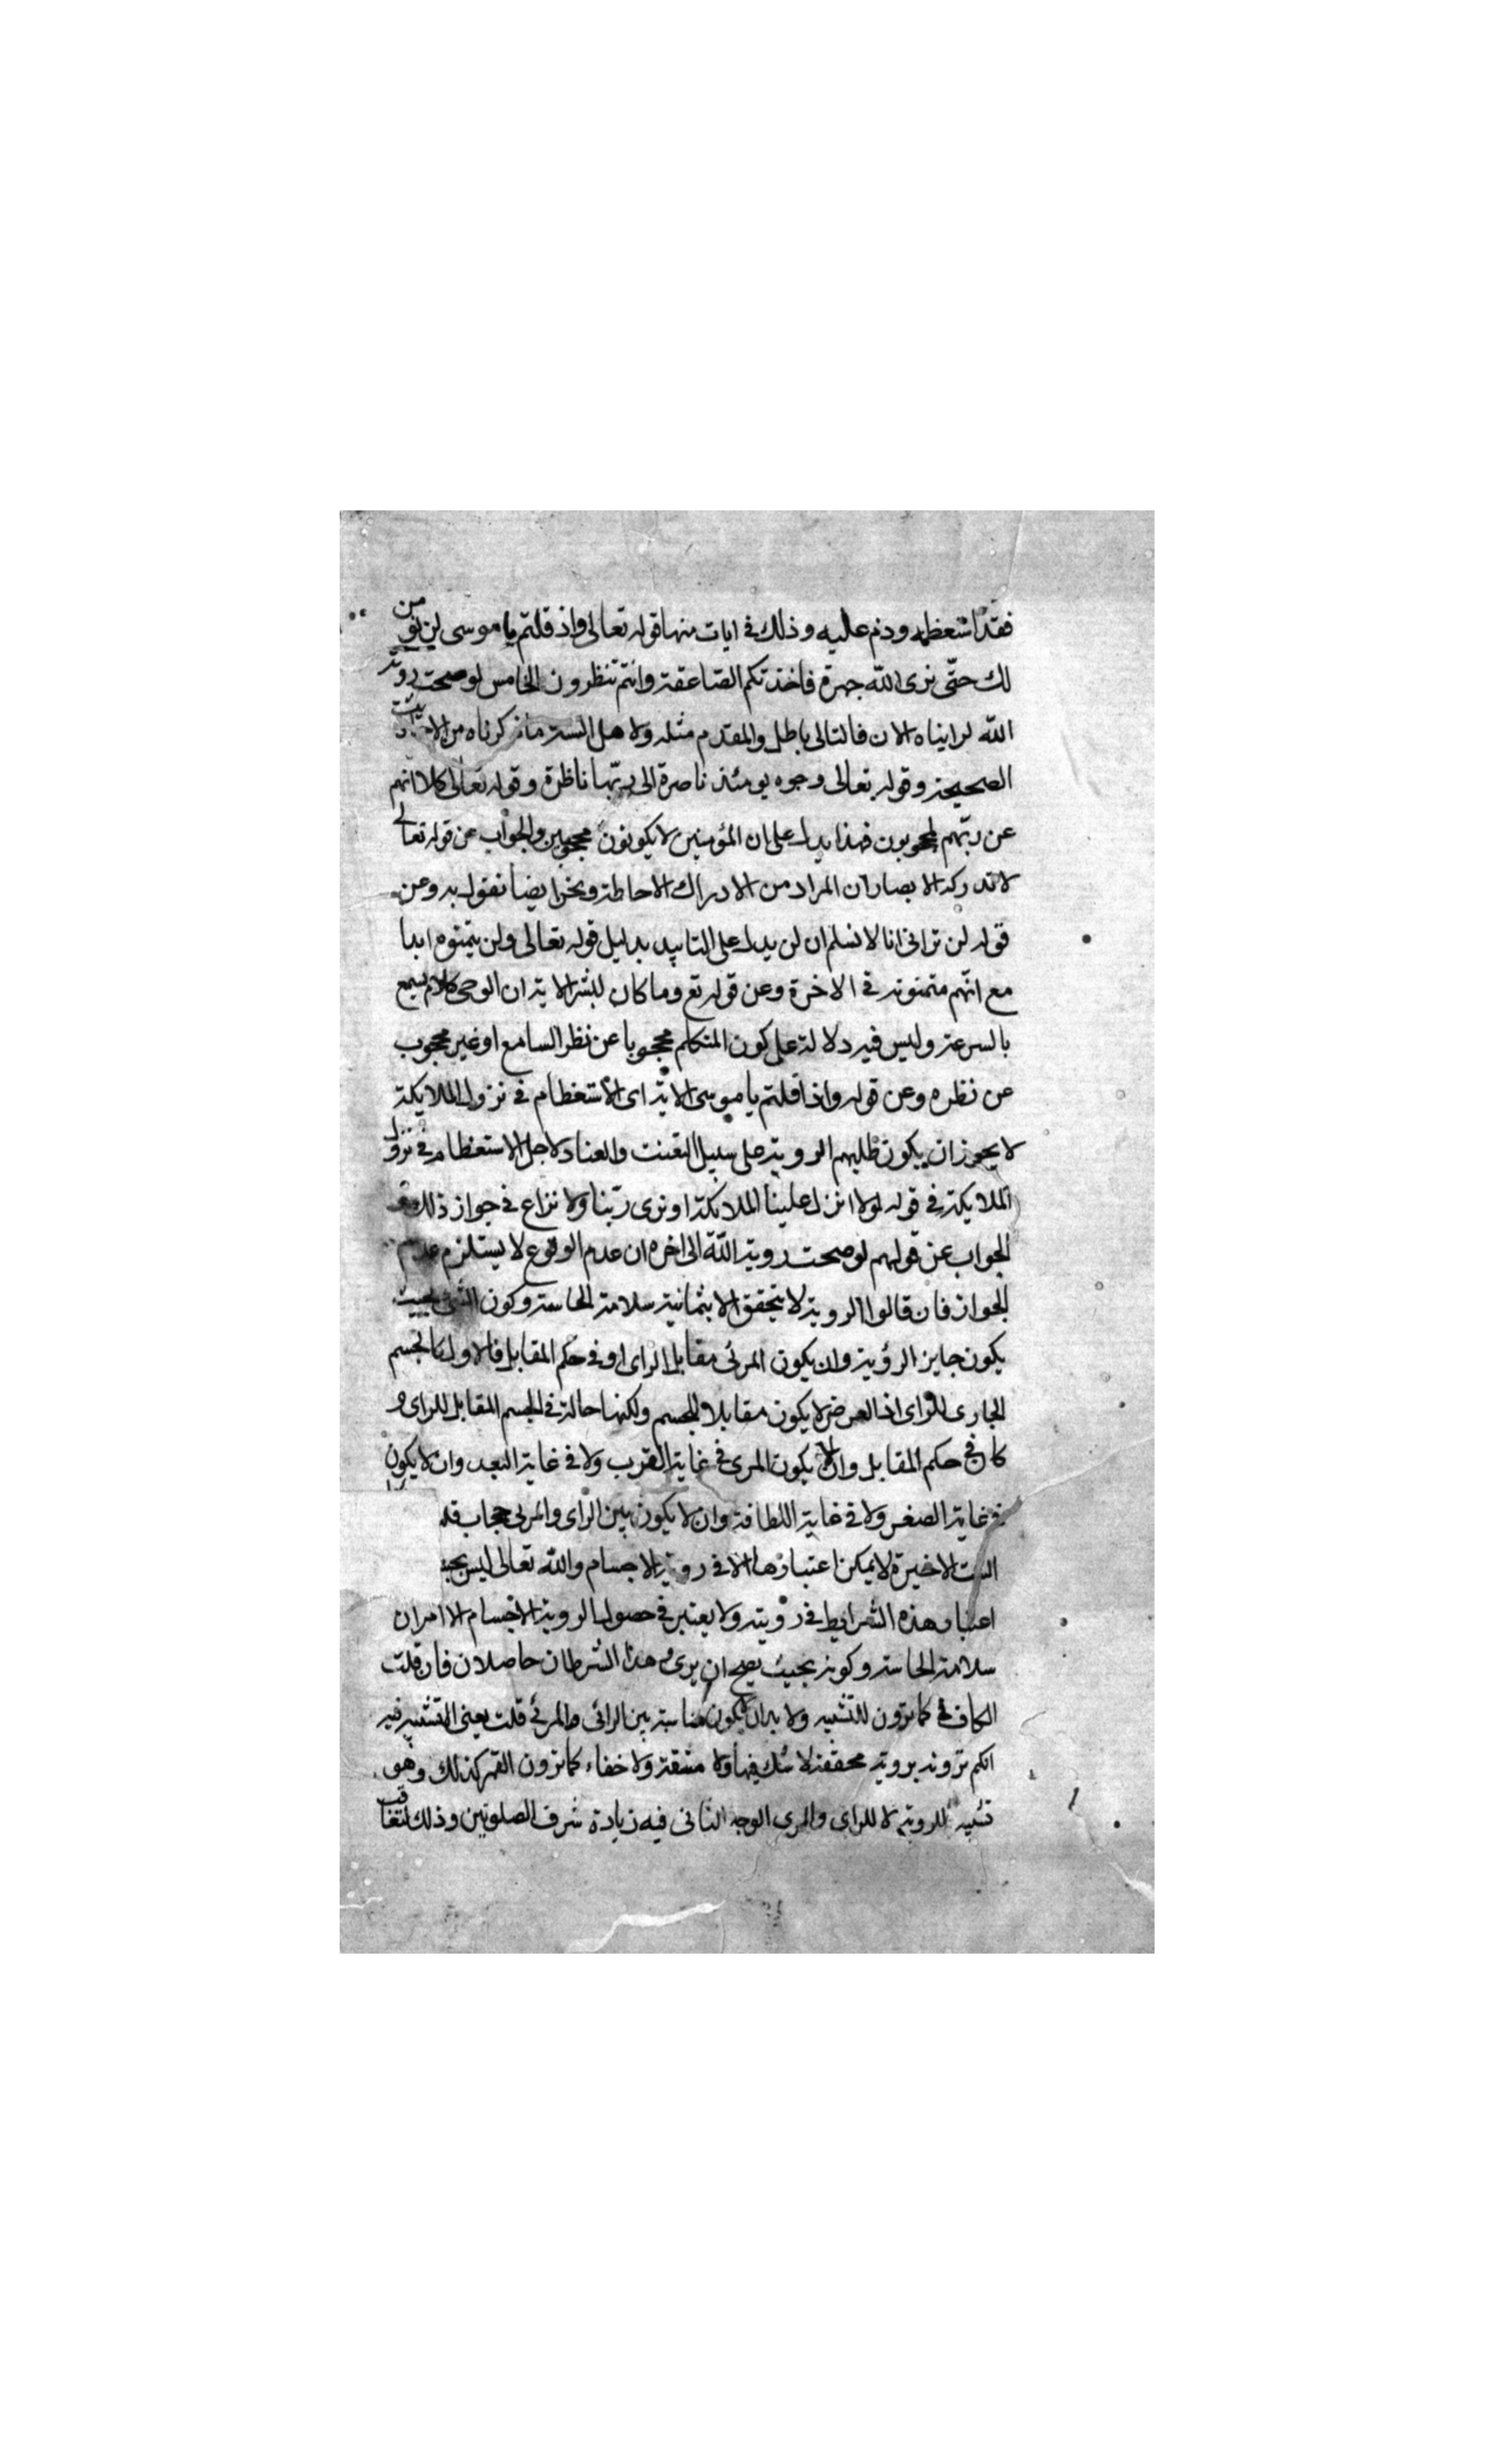 فقد استعظمه وذم عليه وذلك في ايات منها قوله تعالى واذ قلتم يا موسى لن نؤمن
لك حتّى نرى الله جهرة فاخذتكم الصّاعقة وانتم تنظرون الخامس لو صحت روية
الله لرايناه الان فالتالى باطل والمقدم مثله ولاهل السنة ما ذكرناه من الاحاديث
الصحيحة وقوله تعالى وجوه يومئذ ناضرة الى ربّها ناظرة وقوله تعالى كلا انهم
عن ربّهم لمحجوبون فهذا يدل على ان المؤمنين لا يكونون محجوبين والجواب عن قوله تعالى
لا تدركه الابصار ان المراد من الادراك الاحاطة ونحن ايضا نقول به وعن
قوله لن ترانى انا لا نسلم ان لن يدل على التابيد بدليل قوله تعالى ولن يتمنوه ابدا
مع انّهم متمنونه في الاخرة وعن قوله تع وما كان لبشر الاية ان الوحى كلام يسمع
بالسرعة وليس فيه دلالة على كون المتكلم محجوبا عن نظر السامع او غير محجوب
عن نظره وعن قوله واذ قلتم يا موسى الاية اى الاستعظام في نزول الملايكة
لا يجوز ان يكون طلبهم الروية على سبيل التعنت والعناد لاجل الاستعظام في نزول
الملايكة في قوله لولا انزل علينا الملائكة او نرى ربّنا ولا نزاع في جواز ذلك و
الجواب عن قولهم لو صحت روية الله الى اخره ان عدم الوقوع لا يستلزم عدم
الجواز فان قالوا الروية لا يتحقق الا بثمانية سلامة الحاسة وكون الشئ بحيث
يكون جايز الرؤية وان يكون المرئى مقابل الراى او في حكم المقابل فالاول كالجسم
المجارى للراى اذ العرض لا يكون مقابلا للجسم ولكنها حالة في الجسم المقابل للراى و
كان في حكم المقابل وان لا يكون المرى في غاية القرب ولا في غاية البعد وان لا يكون
في غاية الصغر ولا في غاية اللطافة وان لا يكون بين الراى والمرى حجاب قلنا
الست الاخيرة لا يمكن اعتبارها الا في روية الاجسام والله تعالى ليس بجسم
اعتبار هذه الشرايط في رؤيته ولا يعتبر في حصول الروية الاجسام الا امران
سلامة الحاسة وكونه بحيث يصح ان يرى و هذا الشرطان حاصلان فان قلت
الكاف في كما ترون للتشبيه ولا بد ان يكون مناسبة بين الرائى والمرئى قلت يعنى التشبيه فيه
انكم ترونه بروية محققة لا شك فيها ولا مشقة ولا خفاء كما ترون القمر كذلك وهو
تشبيه للروية لا للراى والمرى الوجه الثانى فيه زيادة شرف الصلوتين وذلك لتعاقب